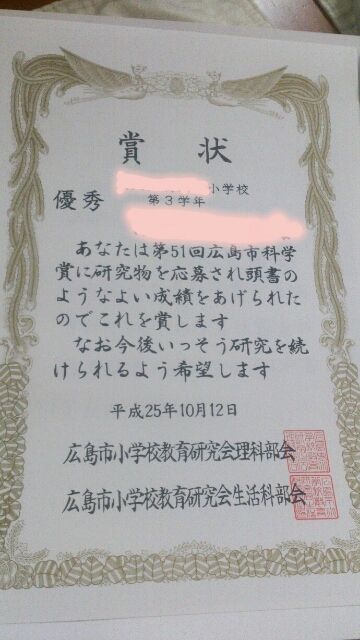 賞状
小学校
優秀
第3学年
あなたは第51回広島市科学
賞に研究物を応募され頭書の
ようなよい成績をあげられた
のでこれを賞します
なお今後いっそう研究を続
けられるよう希望します
平成25年10月12日
広島市小学校教育研究会理科部会
広島市小学校教育研究会生活科部会